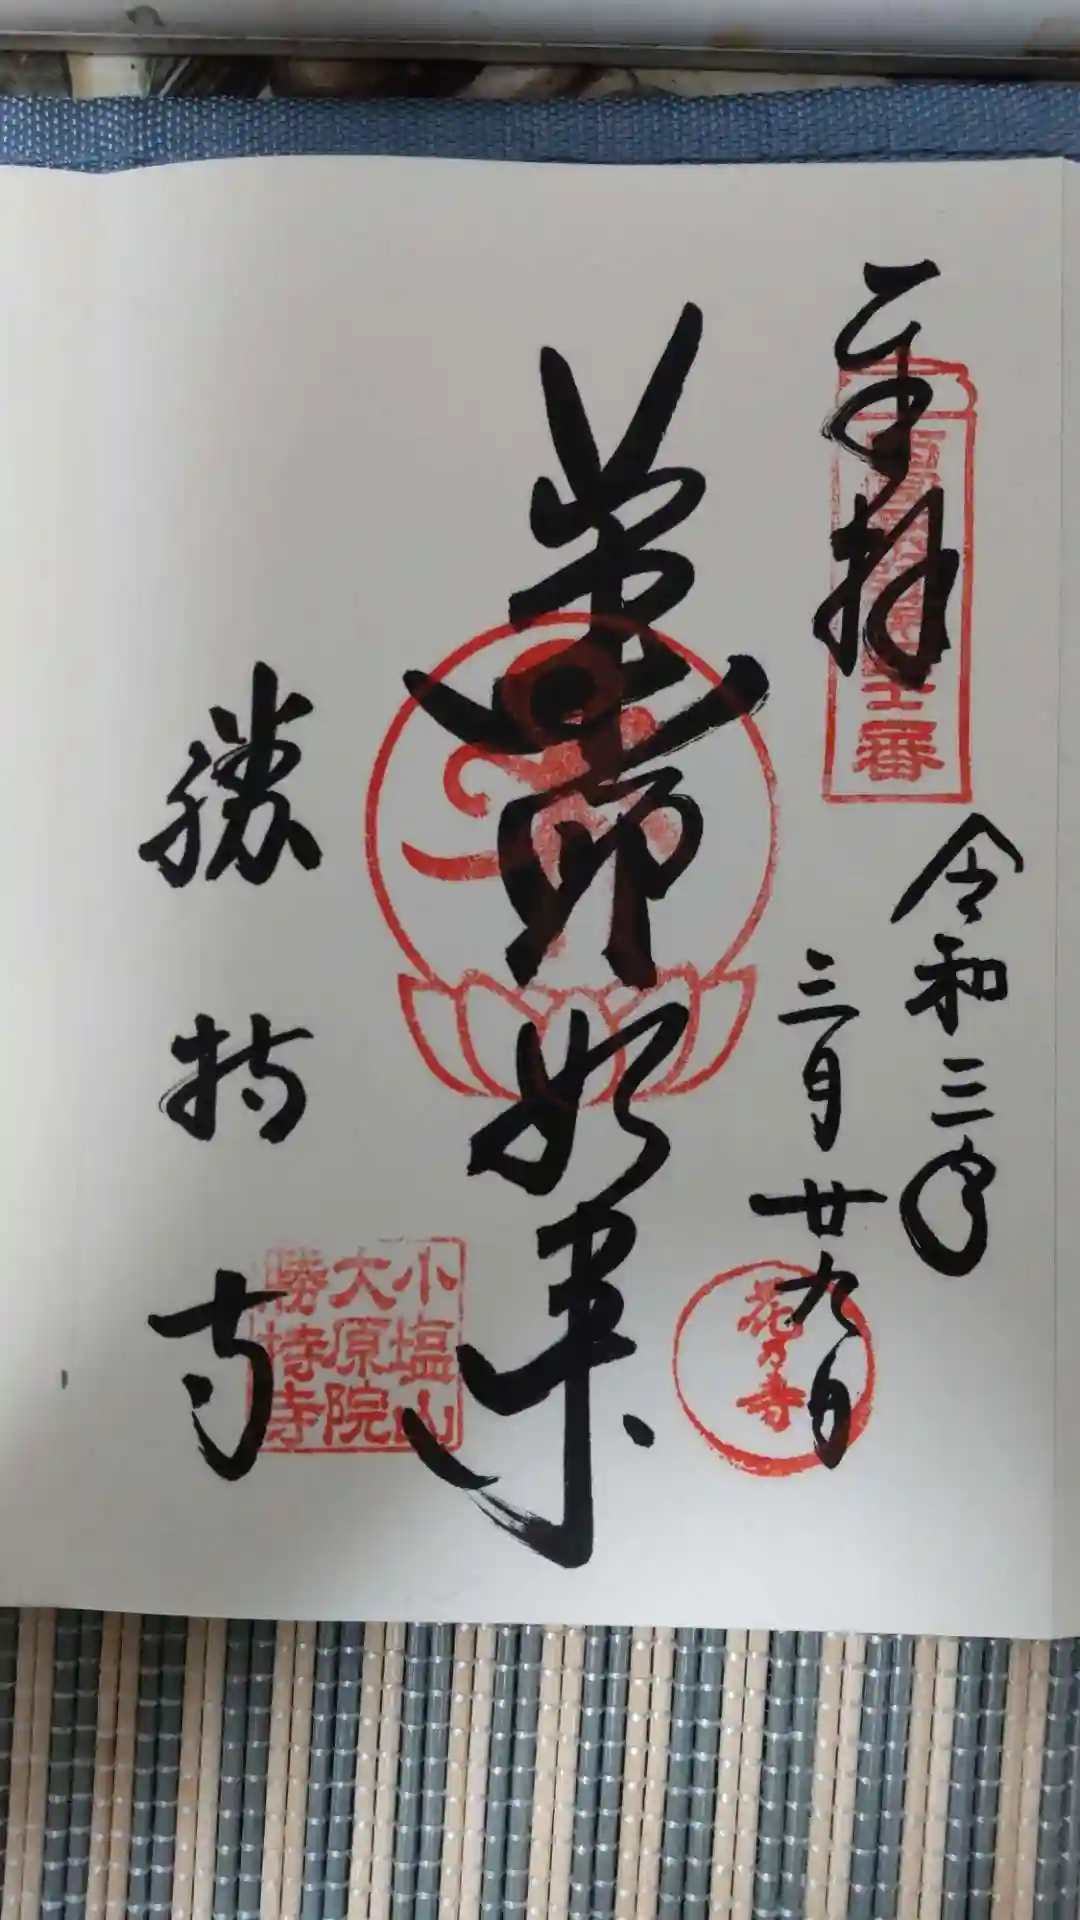 奉拝
士番
令和三年
三月廿九日
花乃寺
薬師如来
小塩山
大原院
勝持寺
勝持寺